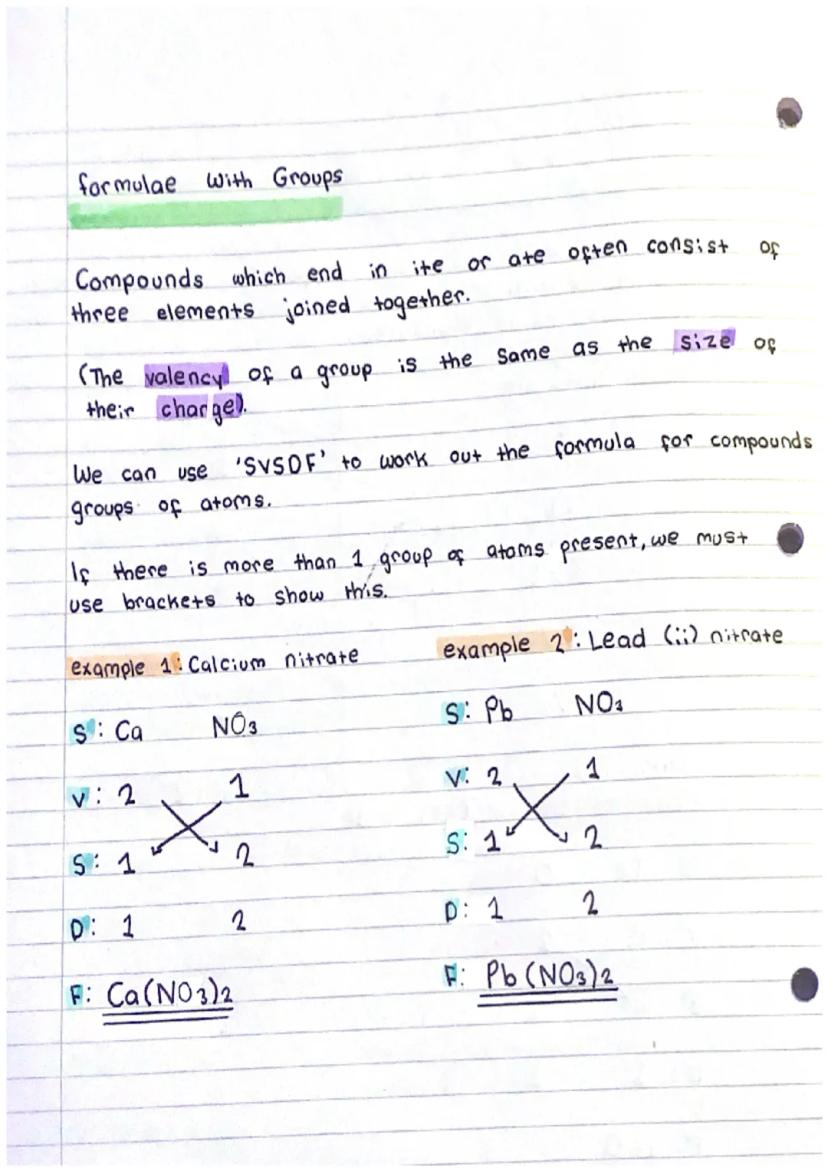 formulae With Groups
Compounds which end in ite or ate often consist of
three elements joined together.
(The valency of a group is the same as the size of
their charge).
We can use 'SVSDF' to work out the formula for compounds
groups of atoms.
If there is more than 1 group of atoms present, we must
use brackets to show this.
example 1: Calcium nitrate
S: Ca NO3
V: 2 1
S: 1 2
D: 1 2
F: Ca(NO3)2
example 2: Lead (ii) nitrate
S: Pb NO3
V: 2 1
S: 1 2
D: 1 2
F: Pb(NO3)2